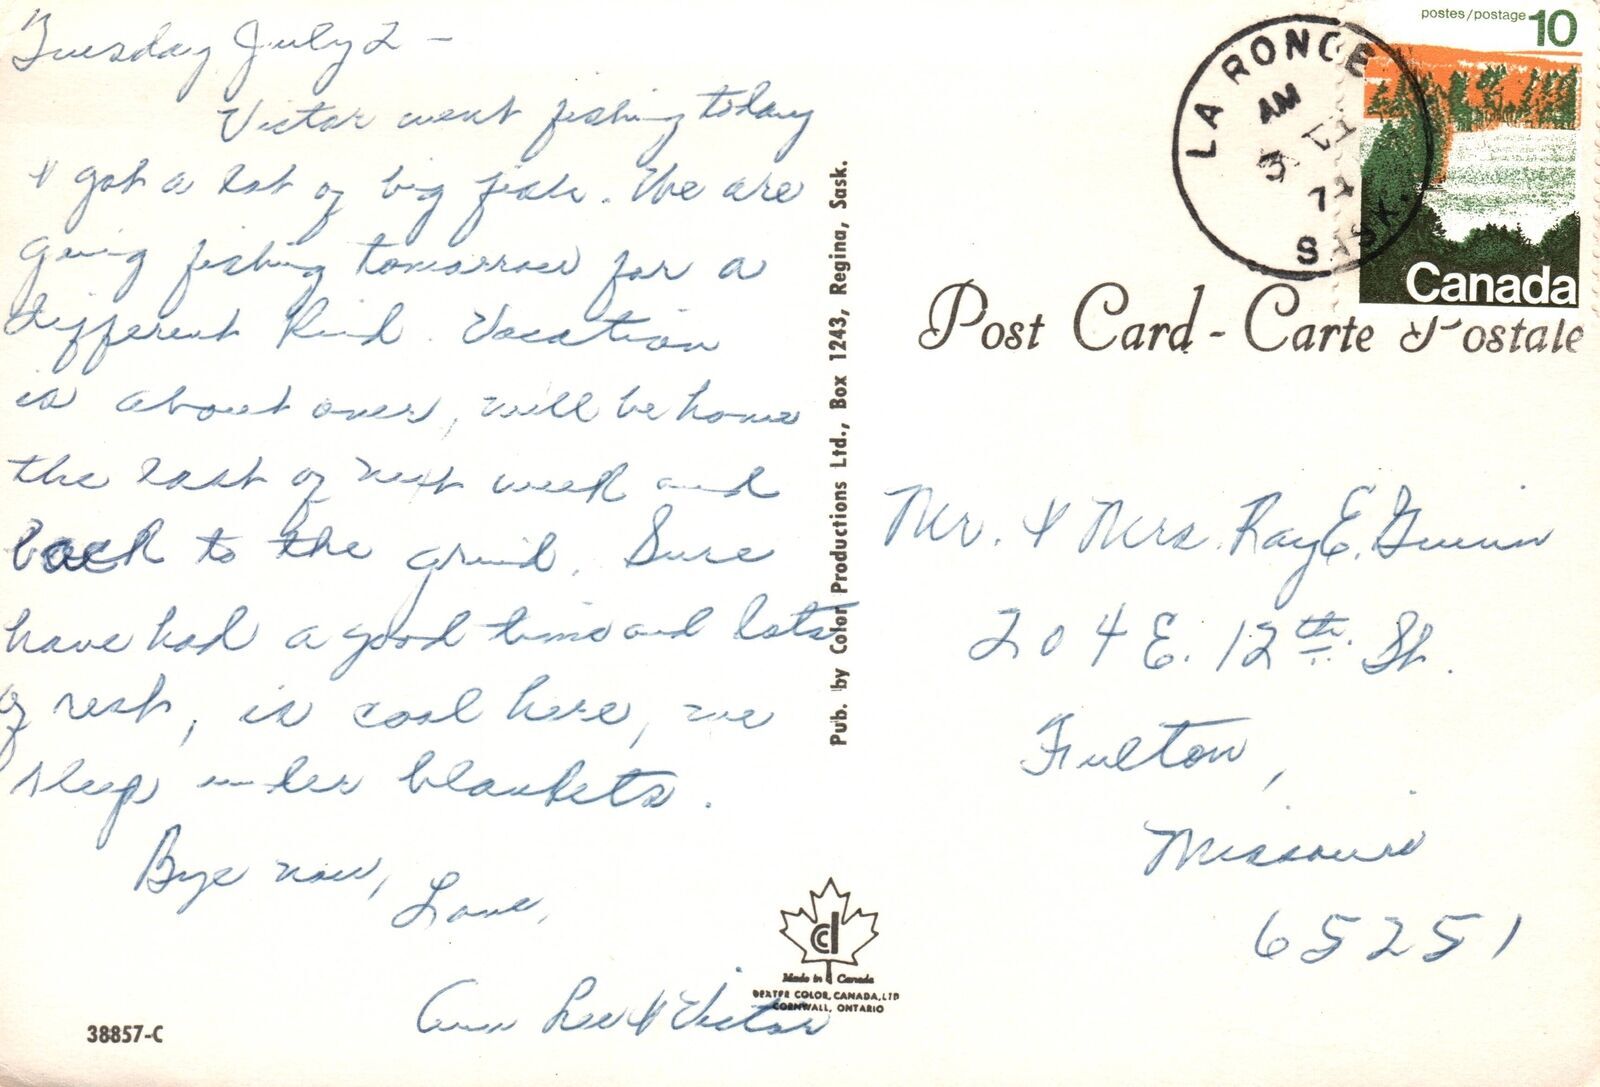 Tuesday July 2 -
Victor went fishing today
& got a lot of big fish. We are
going fishing tomorrow for a
different kind. Vacation
is about over, will be home
the last of next week and
back to the grind. Sure
have had a good time and lots
of rest, is cool here, we
sleep under blankets.
Bye now,
Love,
Ann Lee & Victor
38857-C
Pub. by Color Productions Ltd., Box 1243, Regina, Sask.
Made in Canada
DEXTER COLOR, CANADA, LTD
CORNWALL, ONTARIO
LA RONGE
AM
3 VII
74
SASK.
postes/postage 10
Canada
Post Card - Carte Postale
Mr. & Mrs. Ray E. Guinn
204 E. 12th St.
Fulton,
Missouri
65251